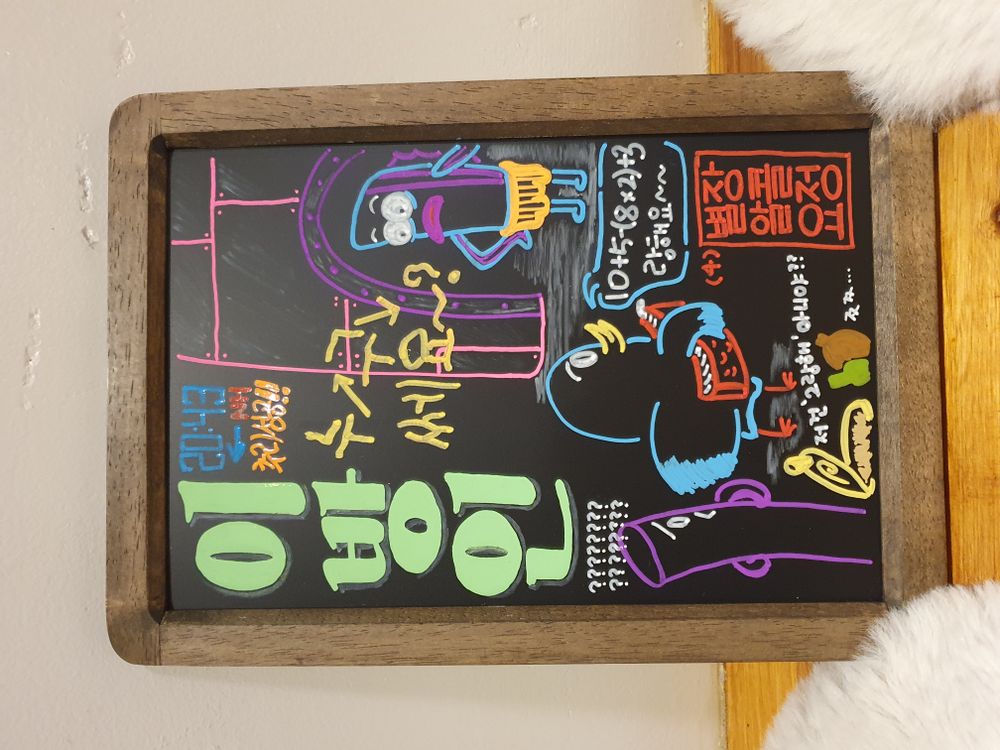 이방인
20:43
NH
추리성공!!
누구
쎄요~?
????????
????????
10+5-(8×2)+3
랑해요~~
(4)
별장
알콜
요정
저건 '2랑해' 아니야??
쯧쯧...